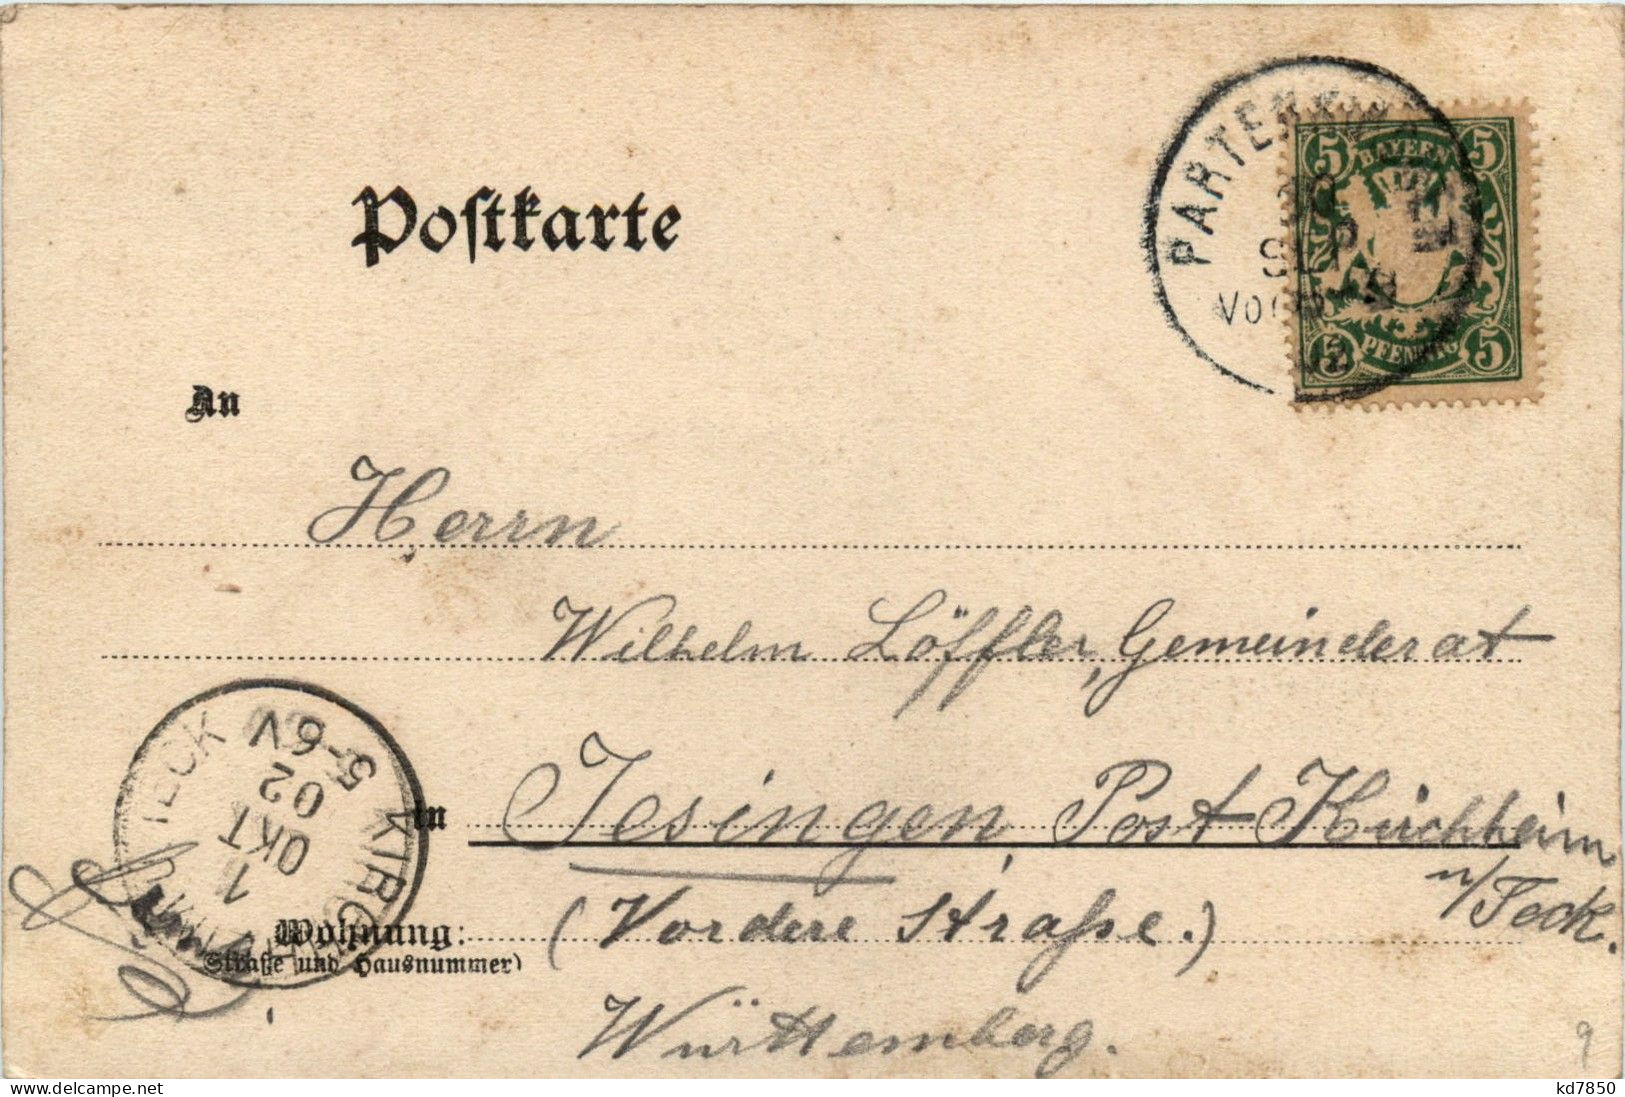 Postkarte
PARTENKIRCHEN
30
SEP
02
BAYERN
5 5
PFENNIG
5 5
An
Herrn
Wilhelm Löffler, Gemeinderat
in Jesingen, Post Kirchheim
u/Teck.
Wohnung: (Vordere Straße.)
(Straße und Hausnummer)
Württemberg.
KIRCHHEIM TECK
1
OKT
02
5-6V
9
delcampe.net
kd7850